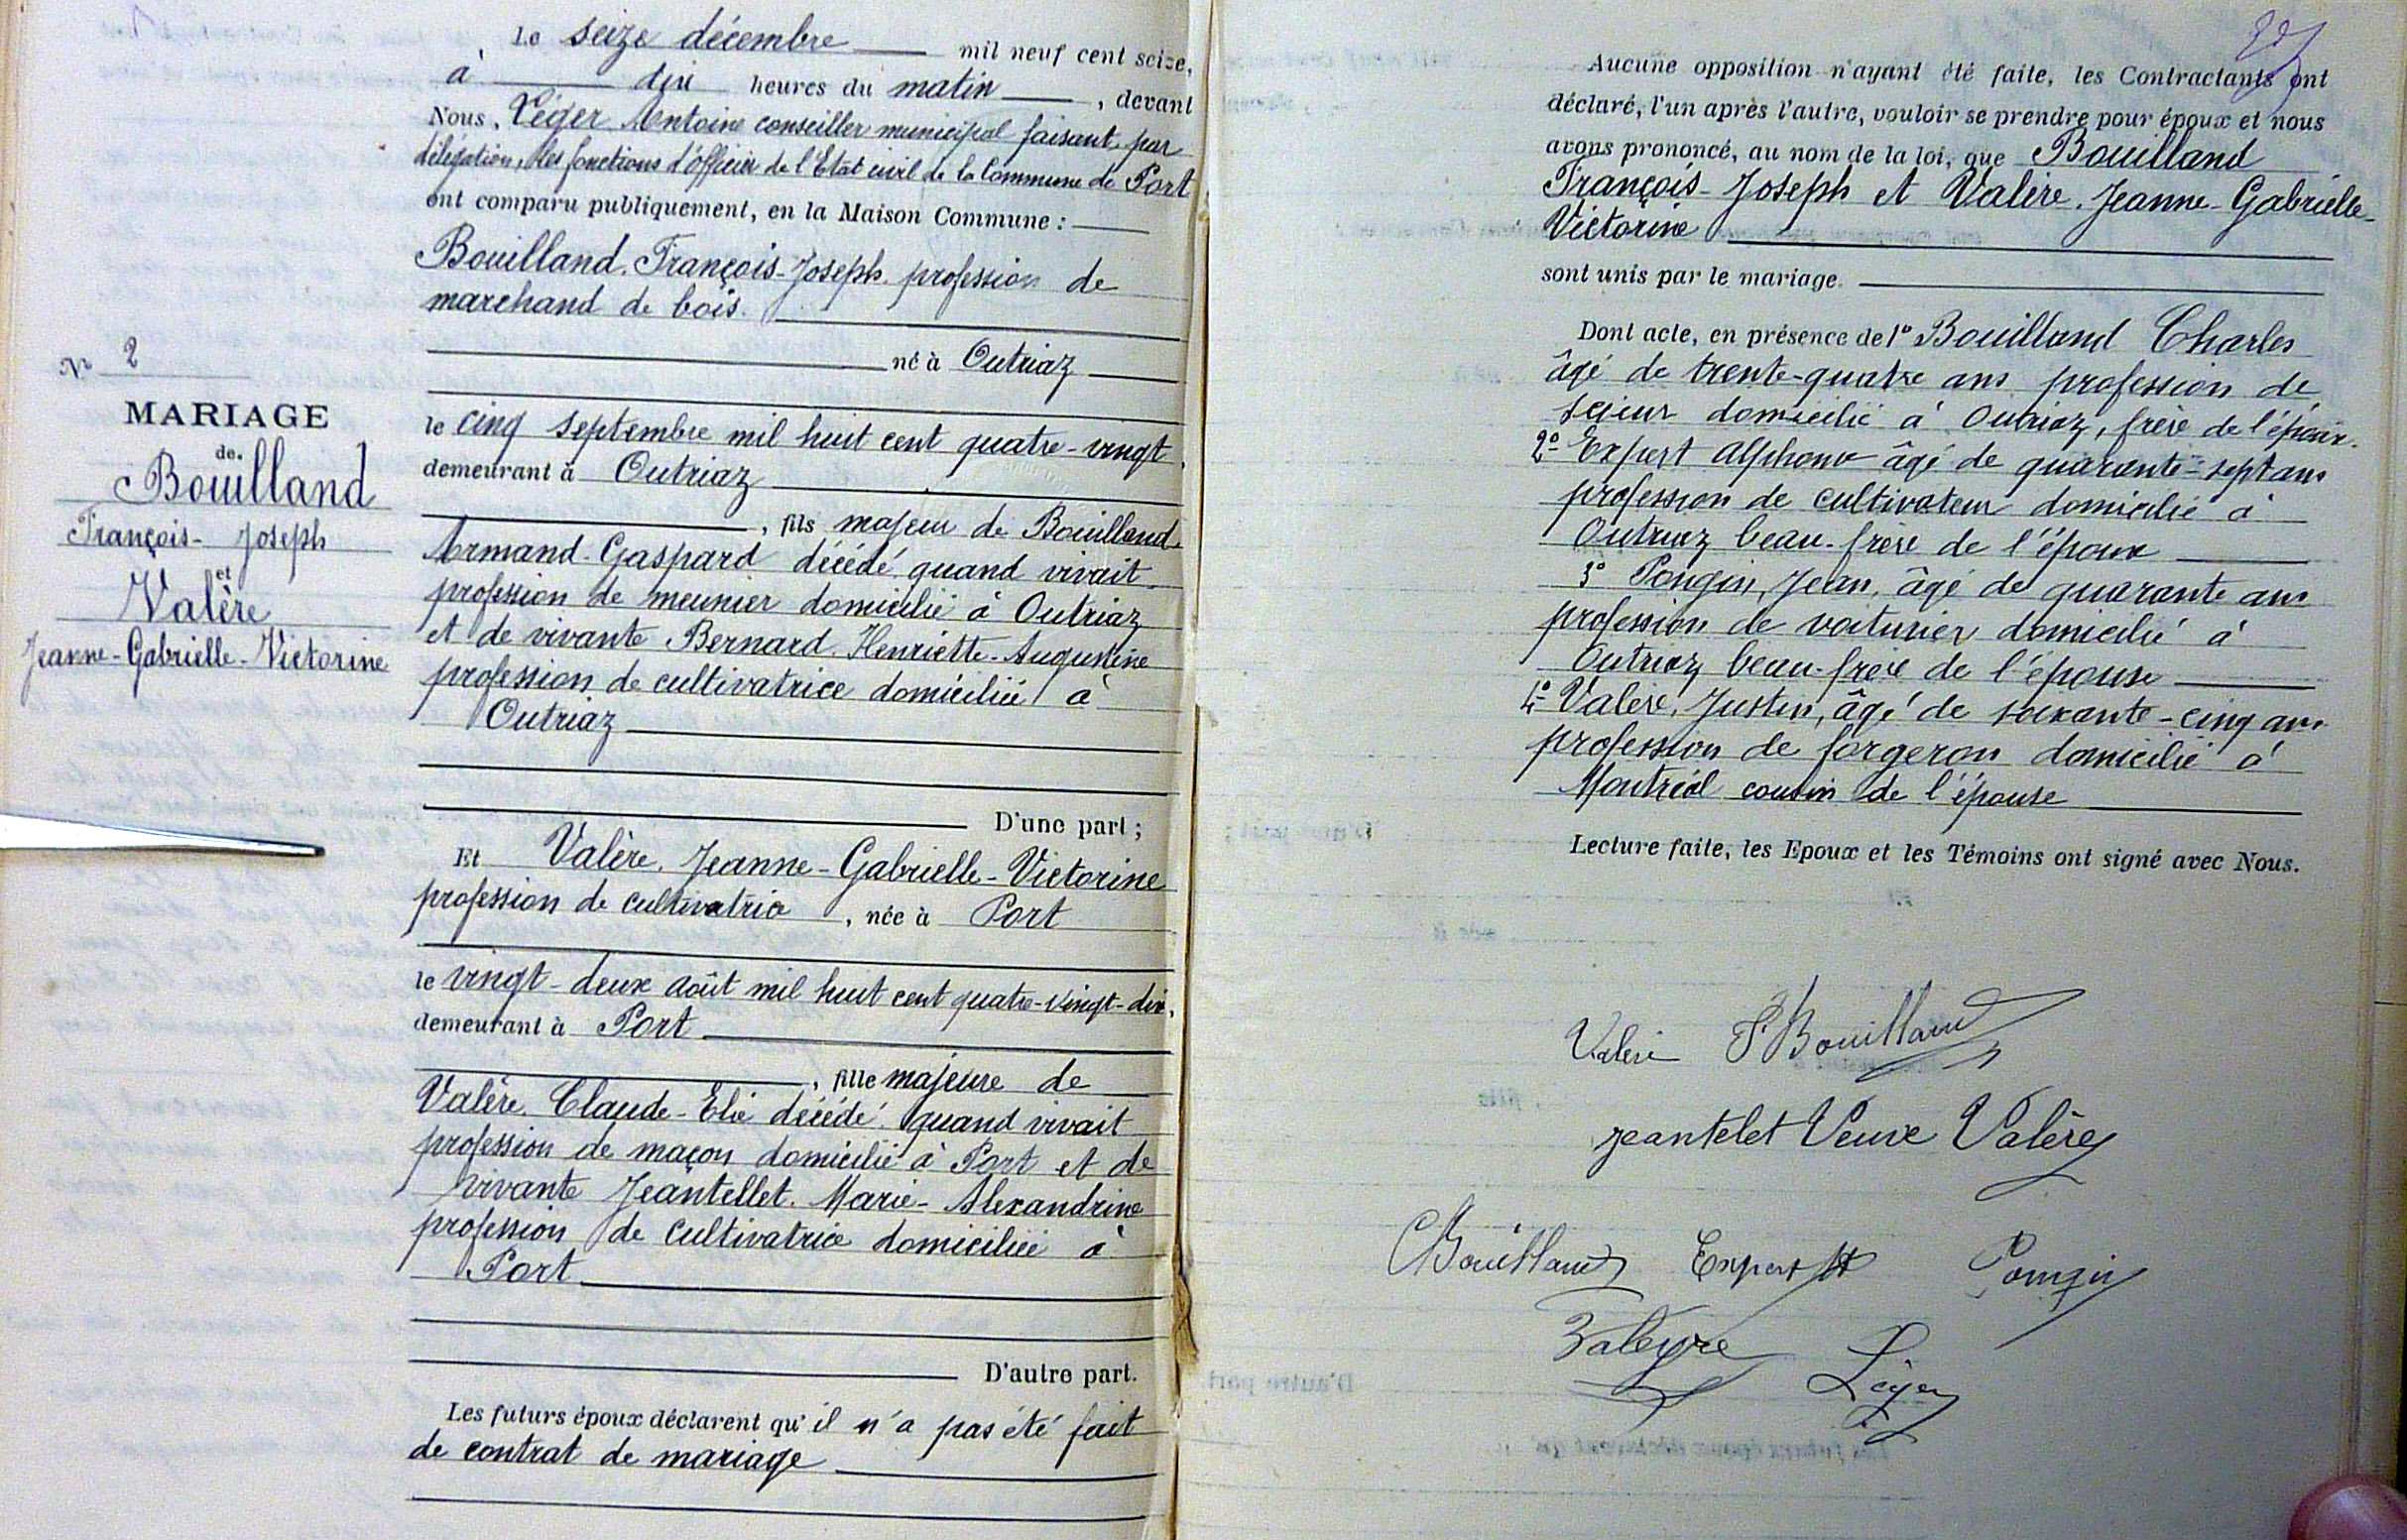 Le seize décembre mil neuf cent seize,
à dix heures du matin, devant
Nous, Léger Antoine conseiller municipal faisant par
délégation, les fonctions d'officier de l'Etat civil de la Commune de Port
ont comparu publiquement, en la Maison Commune :
Bouilland. François-Joseph. profession de
marchand de bois.
né à Outriaz
le cinq septembre mil huit cent quatre-vingt,
demeurant à Outriaz
, fils majeur de Bouilland.
Armand-Gaspard décédé quand vivait
profession de meunier domicilié à Outriaz
et de vivante Bernard. Henriette-Augustine
profession de cultivatrice domiciliée à
Outriaz
D'une part ;
Et Valère. Jeanne-Gabrielle-Victorine
profession de cultivatrice, née à Port
le vingt-deux août mil huit cent quatre-vingt-dix,
demeurant à Port
, fille majeure de
Valère. Claude-Elie décédé quand vivait
profession de maçon domicilié à Port et de
vivante Jeantellet. Marie-Alexandrine
profession de cultivatrice domiciliée à
Port
D'autre part.
Les futurs époux déclarent qu'il n'a pas été fait
de contrat de mariage
N° 2
MARIAGE
de
Bouilland
François-Joseph
et
Valère
Jeanne-Gabrielle-Victorine
Aucune opposition n'ayant été faite, les Contractants ont
déclaré, l'un après l'autre, vouloir se prendre pour époux et nous
avons prononcé, au nom de la loi, que Bouilland
François-Joseph et Valère. Jeanne-Gabrielle-
Victorine
sont unis par le mariage.
Dont acte, en présence de 1° Bouilland Charles
âgé de trente-quatre ans profession de
scieur domicilié à Outriaz, frère de l'époux.
2° Expert Alphonse âgé de quarante-sept ans
profession de cultivateur domicilié à
Outriaz beau-frère de l'époux
3° Pongin, Jean, âgé de quarante ans
profession de voiturier domicilié à
Outriaz beau-frère de l'épouse
4° Valère, Justin, âgé de soixante-cinq ans
profession de forgeron domicilié à
Montréal cousin de l'épouse
Lecture faite, les Epoux et les Témoins ont signé avec Nous.
Valère F Bouilland
jeantelet Veuve Valère
CBouilland Expert A Pongin
Valeyre Léger